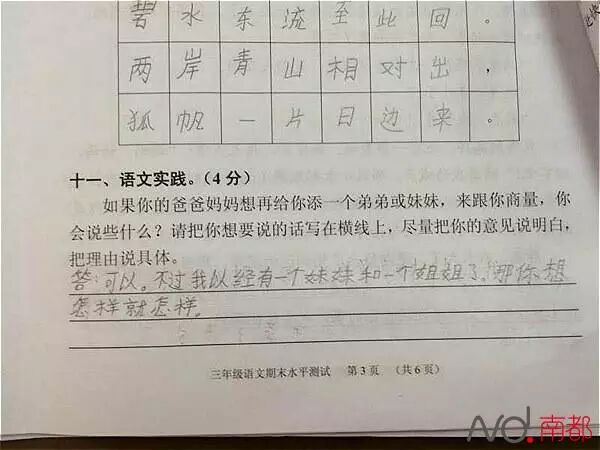 碧水东流至此回。
两岸青山相对出，
狐帆一片日边来。
十一、语文实践。（4分）
如果你的爸爸妈妈想再给你添一个弟弟或妹妹，来跟你商量，你
会说些什么？请把你想要说的话写在横线上，尽量把你的意见说明白，
把理由说具体。
答：可以。不过我以经有一个妹妹和一个姐姐了，那你想
怎样就怎样。
三年级语文期末水平测试 第3页 （共6页）
Nd.南都